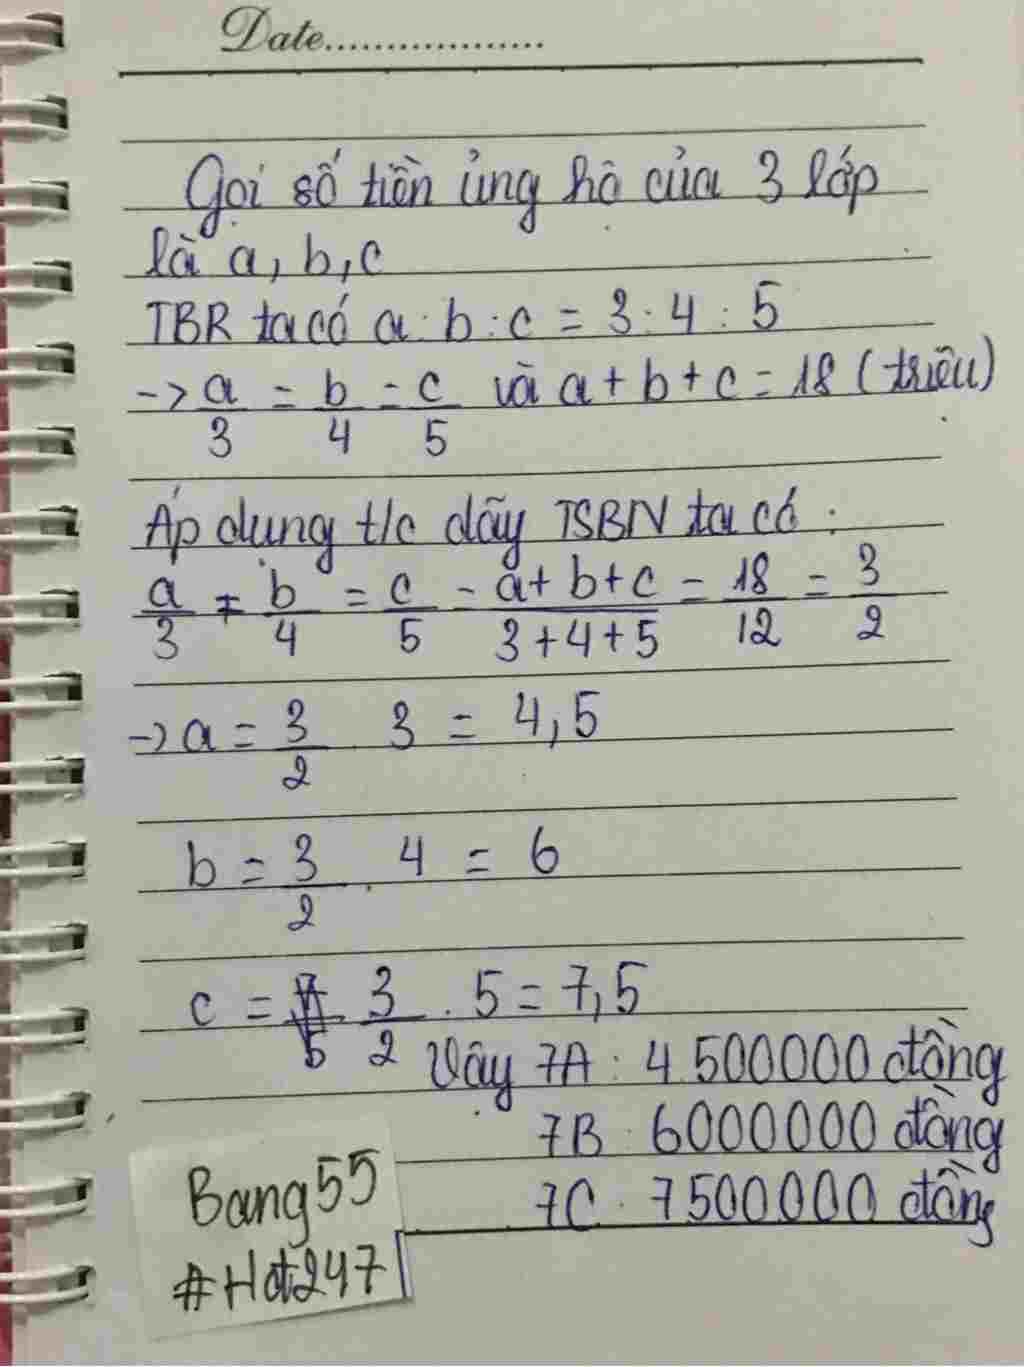 Date..................
Gọi số tiền ủng hộ của 3 lớp
là a, b, c
TBR ta có a : b : c = 3 : 4 : 5
-> a/3 = b/4 = c/5 và a + b + c = 18 (triệu)
Áp dụng t/c dãy TSBN ta có :
a/3 = b/4 = c/5 = a+b+c/3+4+5 = 18/12 = 3/2
-> a = 3/2 . 3 = 4,5
b = 3/2 . 4 = 6
c = 3/2 . 5 = 7,5
Vậy 7A : 4.500000 đồng
7B : 6000000 đồng
7C : 7500000 đồng
Bang55
#Hot247